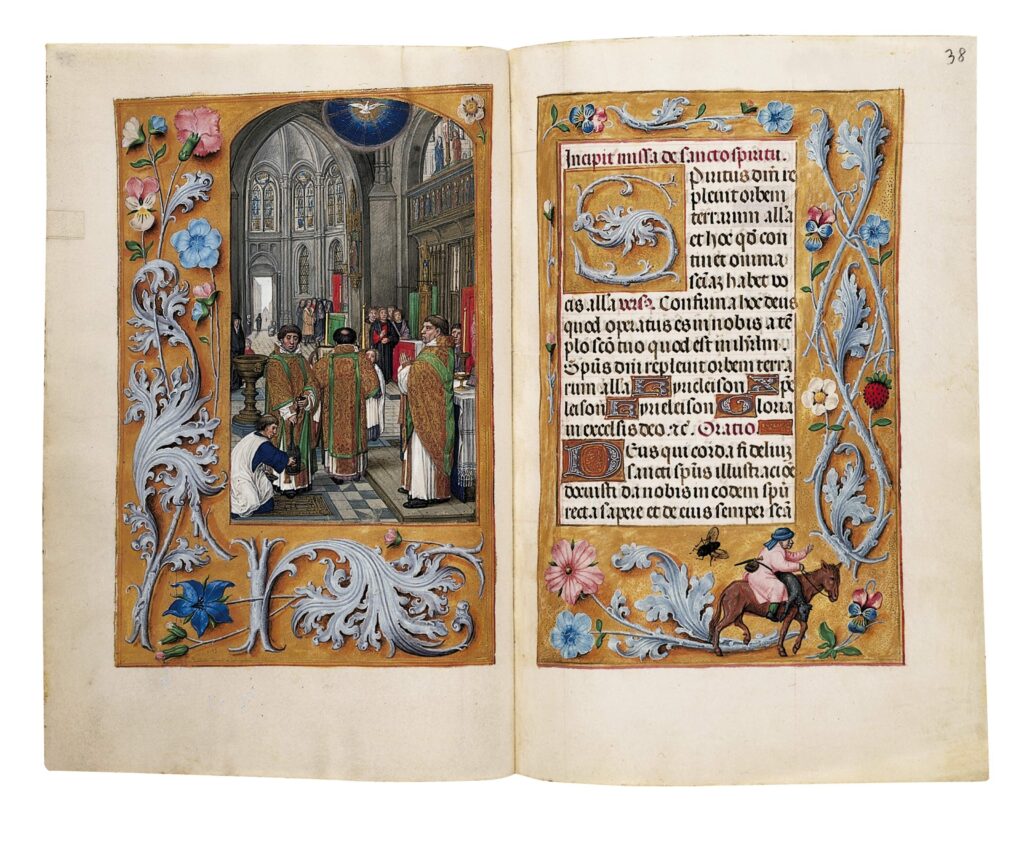 38
Incipit missa de sancto spiritu.
Spiritus dñi re
pleuit orbem
terrarum alla
et hoc qd con
tinet omnia
sciaz habet vo
cis alla vers. Confirma hoc deus
quod operatus es in nobis a tē
plo scō tuo quod est in ihrlm.
Spūs dñi repleuit orbem terra
rum alla Kyrieleison Xpe
leison Kyrieleison Gloria
in excelsis deo. Oratio
Deus qui corda fideliuz
sancti spūs illustracioē
docuisti da nobis in eodem spū
recta sapere et de eius semper